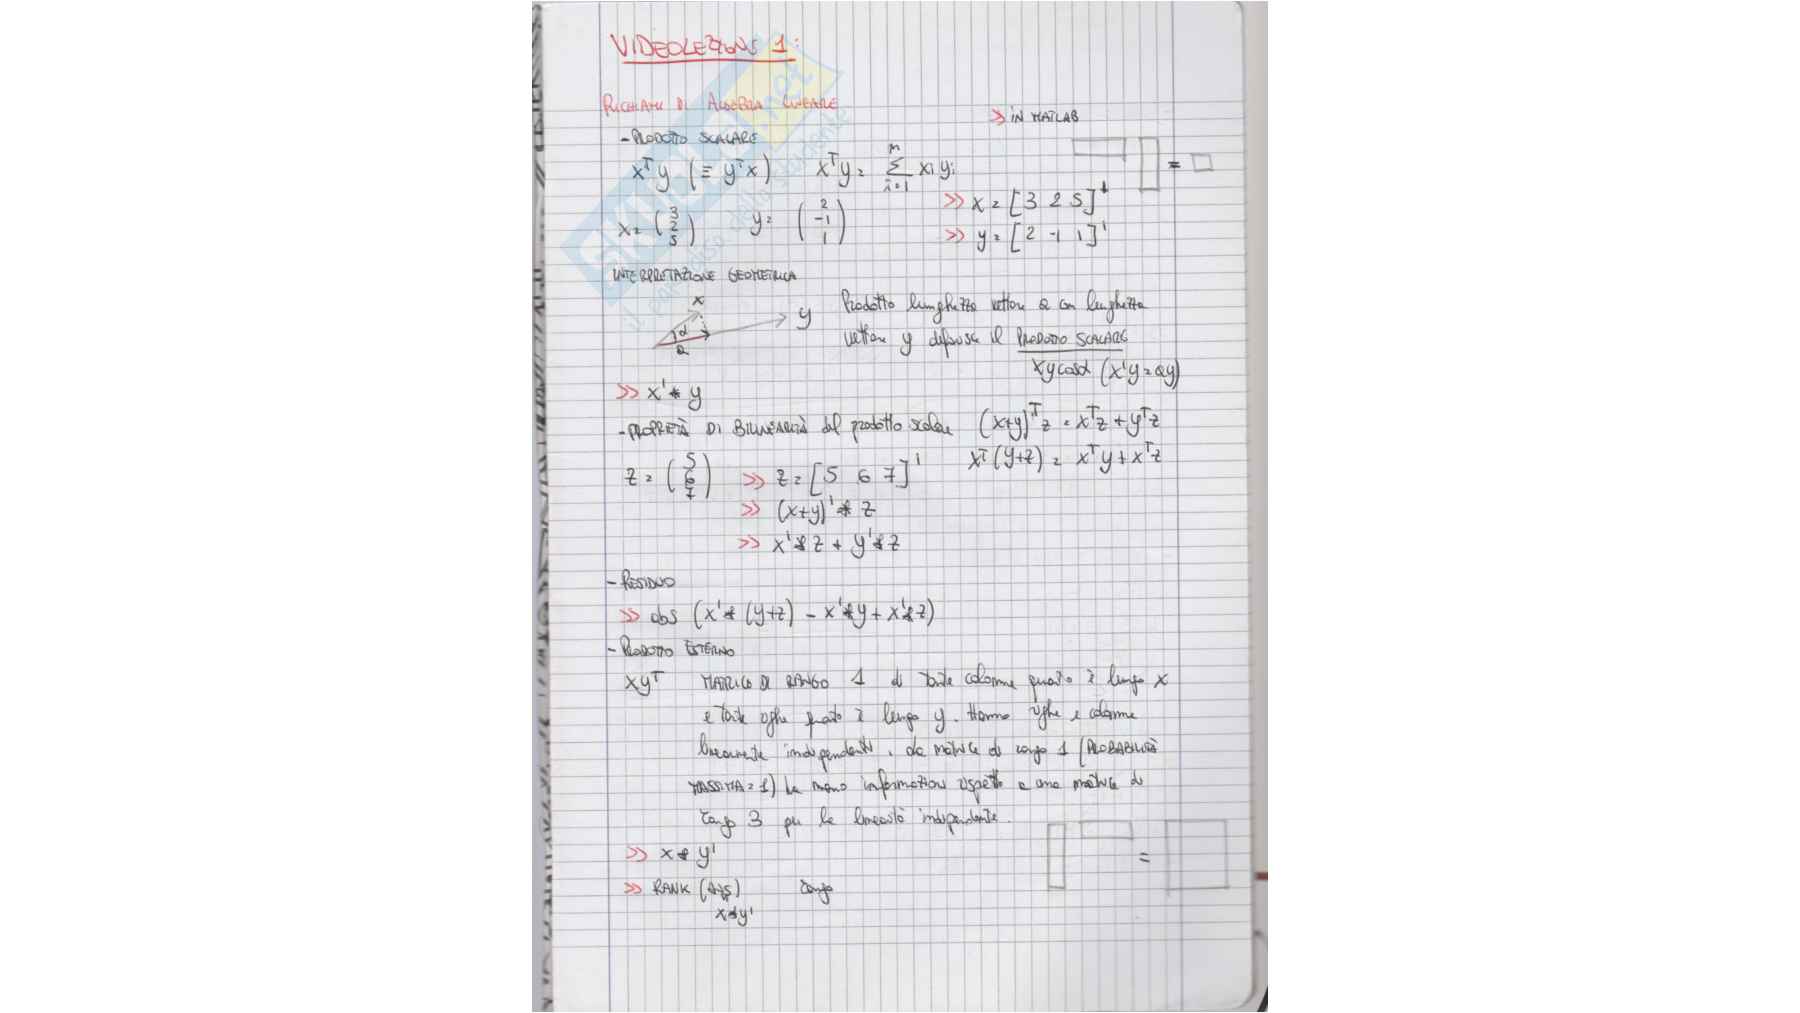 VIDEOLEZIONE 1:
RICHIAMI DI ALGEBRA LINEARE
>> IN MATLAB
- PRODOTTO SCALARE
xᵀy (≡ yᵀx) xᵀy = Σ_{i=1}^{n} xᵢ yᵢ
=
x = (3 2 5) y = (2 -1 1)
>> x = [3 2 5]'
>> y = [2 -1 1]'
INTERPRETAZIONE GEOMETRICA
x
α
y
a
Prodotto lunghezza vettore a con lunghezza
vettore y definisce il PRODOTTO SCALARE
xy cosα (x'y = ay)
>> x' * y
- PROPRIETÀ DI BILINEARITÀ del prodotto scalare (x+y)ᵀz = xᵀz + yᵀz
xᵀ(y+z) = xᵀy + xᵀz
z = (5 6 7) >> z = [5 6 7]'
>> (x+y)' * z
>> x' * z + y' * z
- RESIDUO
>> abs (x' * (y+z) - x' * y + x' * z)
- PRODOTTO ESTERNO
xyᵀ MATRICE DI RANGO 1 di tante colonne quanto è lungo x
e tante righe quanto è lungo y. Hanno righe e colonne
linearmente indipendenti. La matrice di rango 1 (PROBABILITÀ
MASSIMA = 1) ha meno informazioni rispetto a una matrice di
rango 3 per la linearità indipendente.
>> x * y'
=
>> RANK (ans) rango
x * y'
SKUOLA.net
il paradiso dello studente